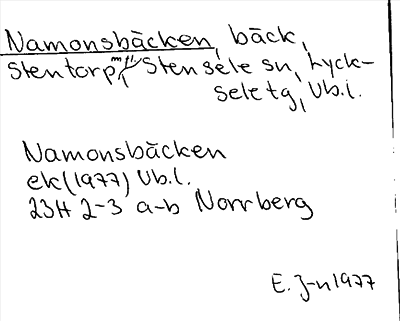 Namonsbäcken, bäck,
Stentorp m fl, Stensele sn, Lyck-
sele tg, Vb.l.
Namonsbäcken
ek (1977) Vb.l.
23H 2-3 a-b Norrberg
E. J-n 1977